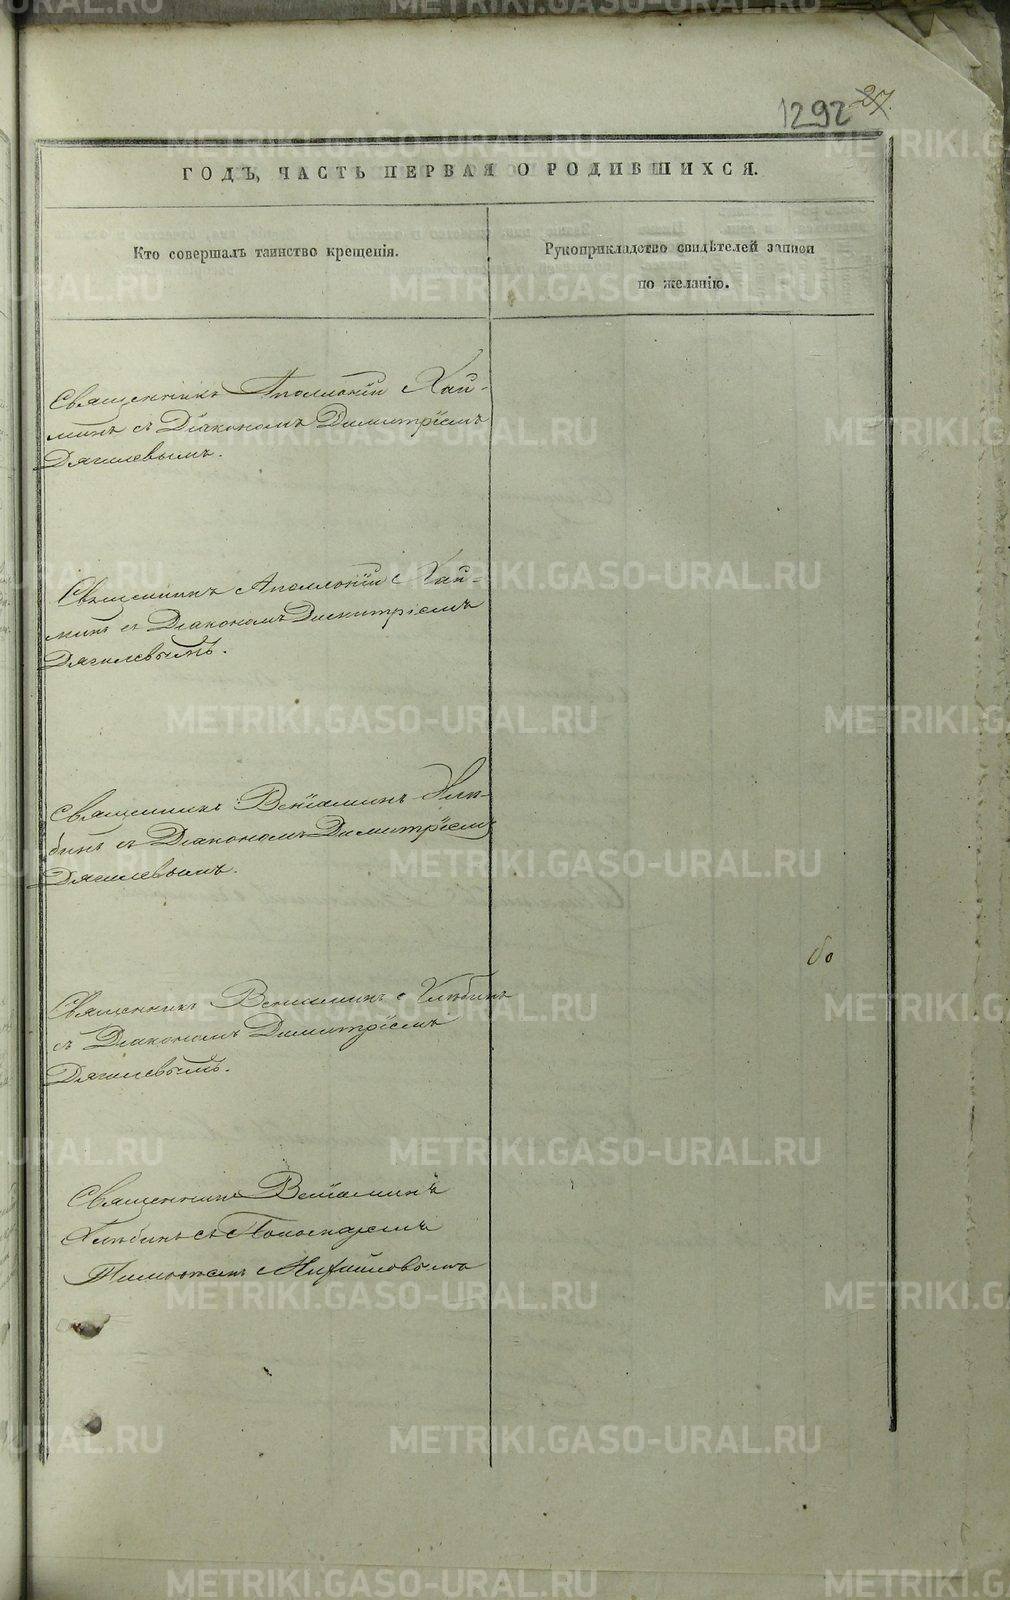 1292 27.
ГОДЪ, ЧАСТЬ ПЕРВАЯ О РОДИВШИХСЯ.
Кто совершалъ таинство крещенія.
Рукоприкладство свидѣтелей записи
по желанію.
Священникъ Аполлоній Хай-
минъ съ Діакономъ Димитріемъ
Дягилевымъ.
Священникъ Аполлоній Хай-
минъ съ Діакономъ Димитріемъ
Дягилевымъ.
Священникъ Веніаминъ
съ Діакономъ Димитріемъ
Дягилевымъ.
Священникъ Веніаминъ
съ Діакономъ Димитріемъ
Дягилевымъ.
Священникъ Веніаминъ
съ Пономаремъ
Михайловымъ
METRIKI.GASO-URAL.RU